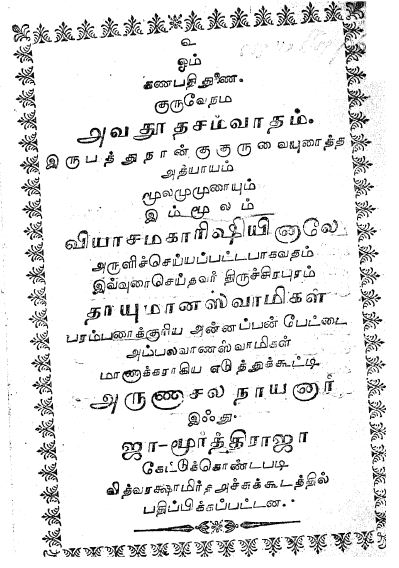 உ
ஓம்
கணபதிதுணை.
குருவேநம
அவதூதசம்வாதம்.
இருபத்துநான்குகுருவையுரைத்த
அத்யாயம்
மூலமுமுரையும்
இம்மூலம்
வியாசமகாரிஷியினாலே
அருளிச்செய்யப்பட்டபாகவதம்
இவ்வுரைசெய்தவர் திருச்சிரபுரம்
தாயுமானஸ்வாமிகள்
பரம்பரைக்குரிய அன்னப்பன் பேட்டை
அம்பலவாணஸ்வாமிகள்
மாணாக்கராகிய எடுத்துக்கூட்டி
அருணாசல நாயனார்
இஃது.
ஜா-மூர்த்திராஜா
கேட்டுக்கொண்டபடி
வித்வரக்ஷாமிர்த அச்சுக்கூடத்தில்
பதிப்பிக்கப்பட்டன.